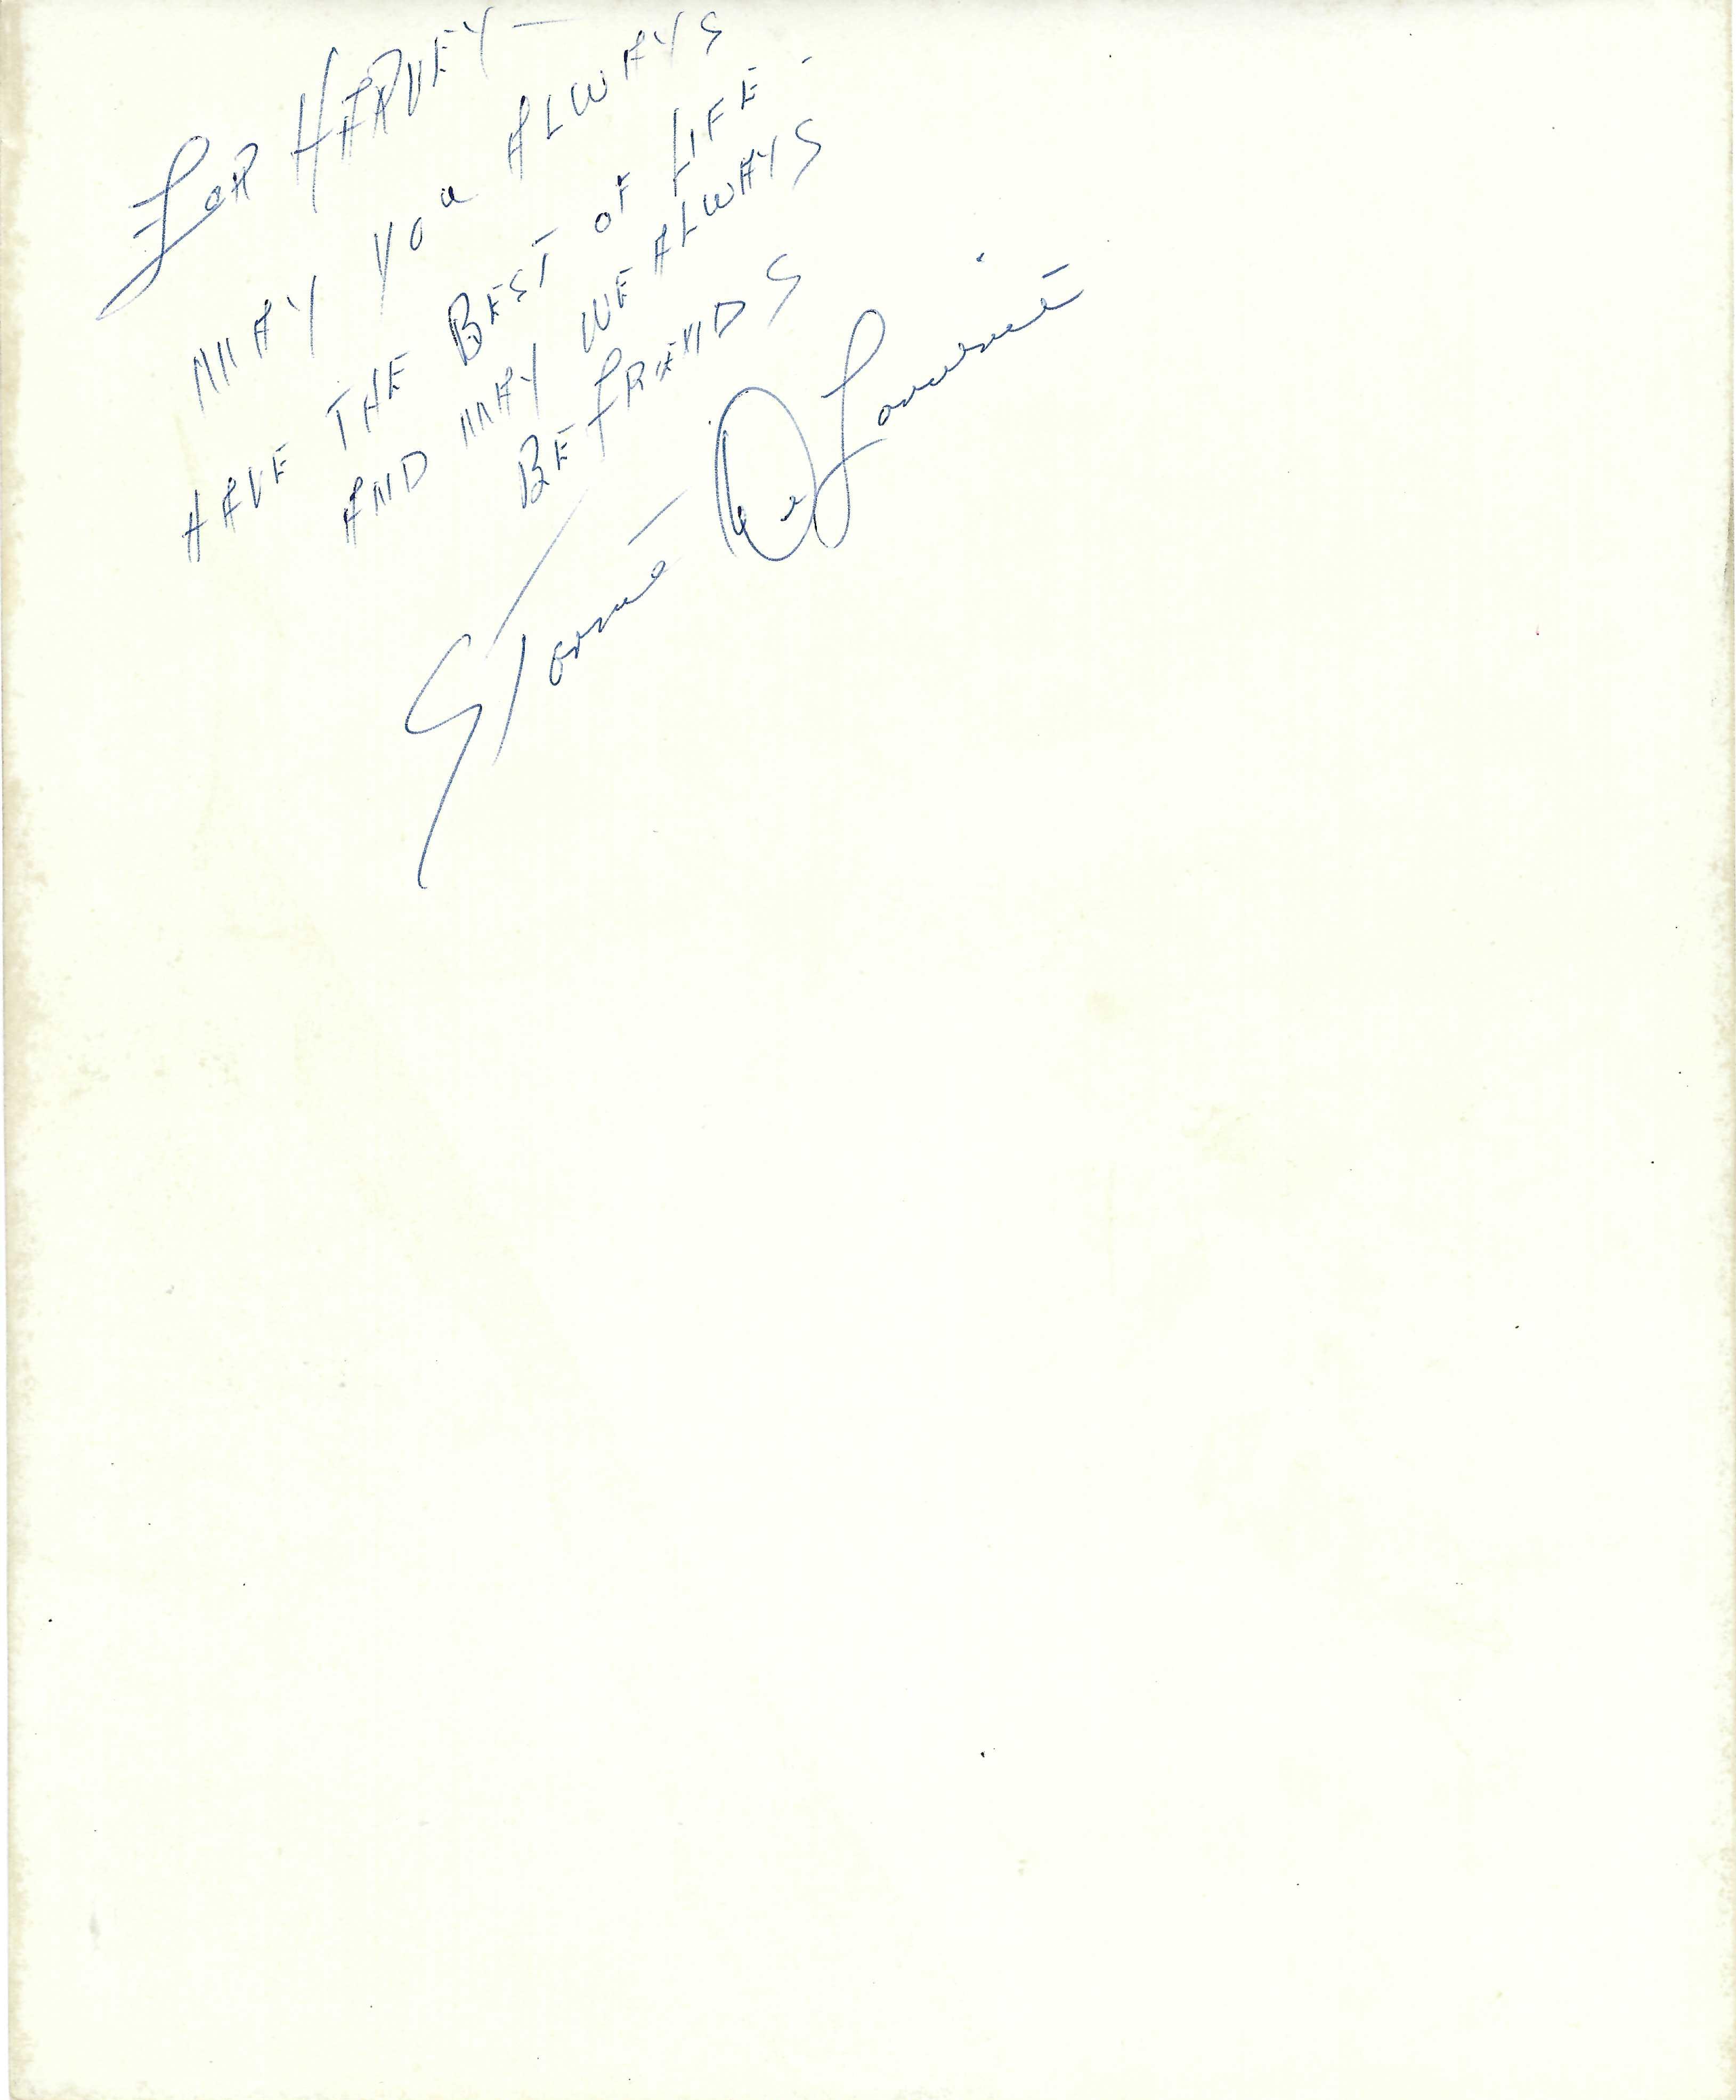 For HARVEY —
MAY YOU ALWAYS
HAVE THE BEST OF LIFE -
AND MAY WE ALWAYS
BE FRIENDS
Stormé DeLarverié